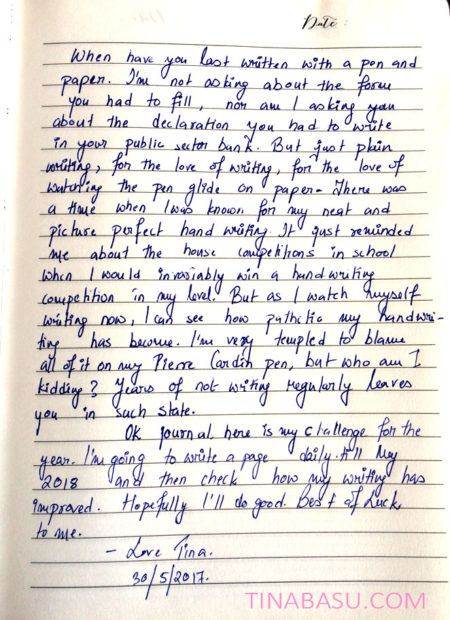 Date :
When have you last written with a pen and
paper. I'm not asking about the form
you had to fill, nor am I asking you
about the declaration you had to write
in your public sector bank. But just plain
writing, for the love of writing, for the love of
watching the pen glide on paper. There was
a time when I was known for my neat and
picture perfect hand writing. It just reminded
me about the house competitions in school
when I would invariably win a handwriting
competition in my level. But as I watch myself
writing now, I can see how pathetic my handwri-
ting has become. I'm very tempted to blame
all of it on my Pierre Cardin pen, but who am I
kidding? Years of not writing regularly leaves
you in such state.
OK journal, here is my challenge for the
year. I'm going to write a page daily till May
2018 and then check how my writing has
improved. Hopefully I'll do good. Best of Luck
to me.
- Love Tina.
30/5/2017.
TINABASU.COM